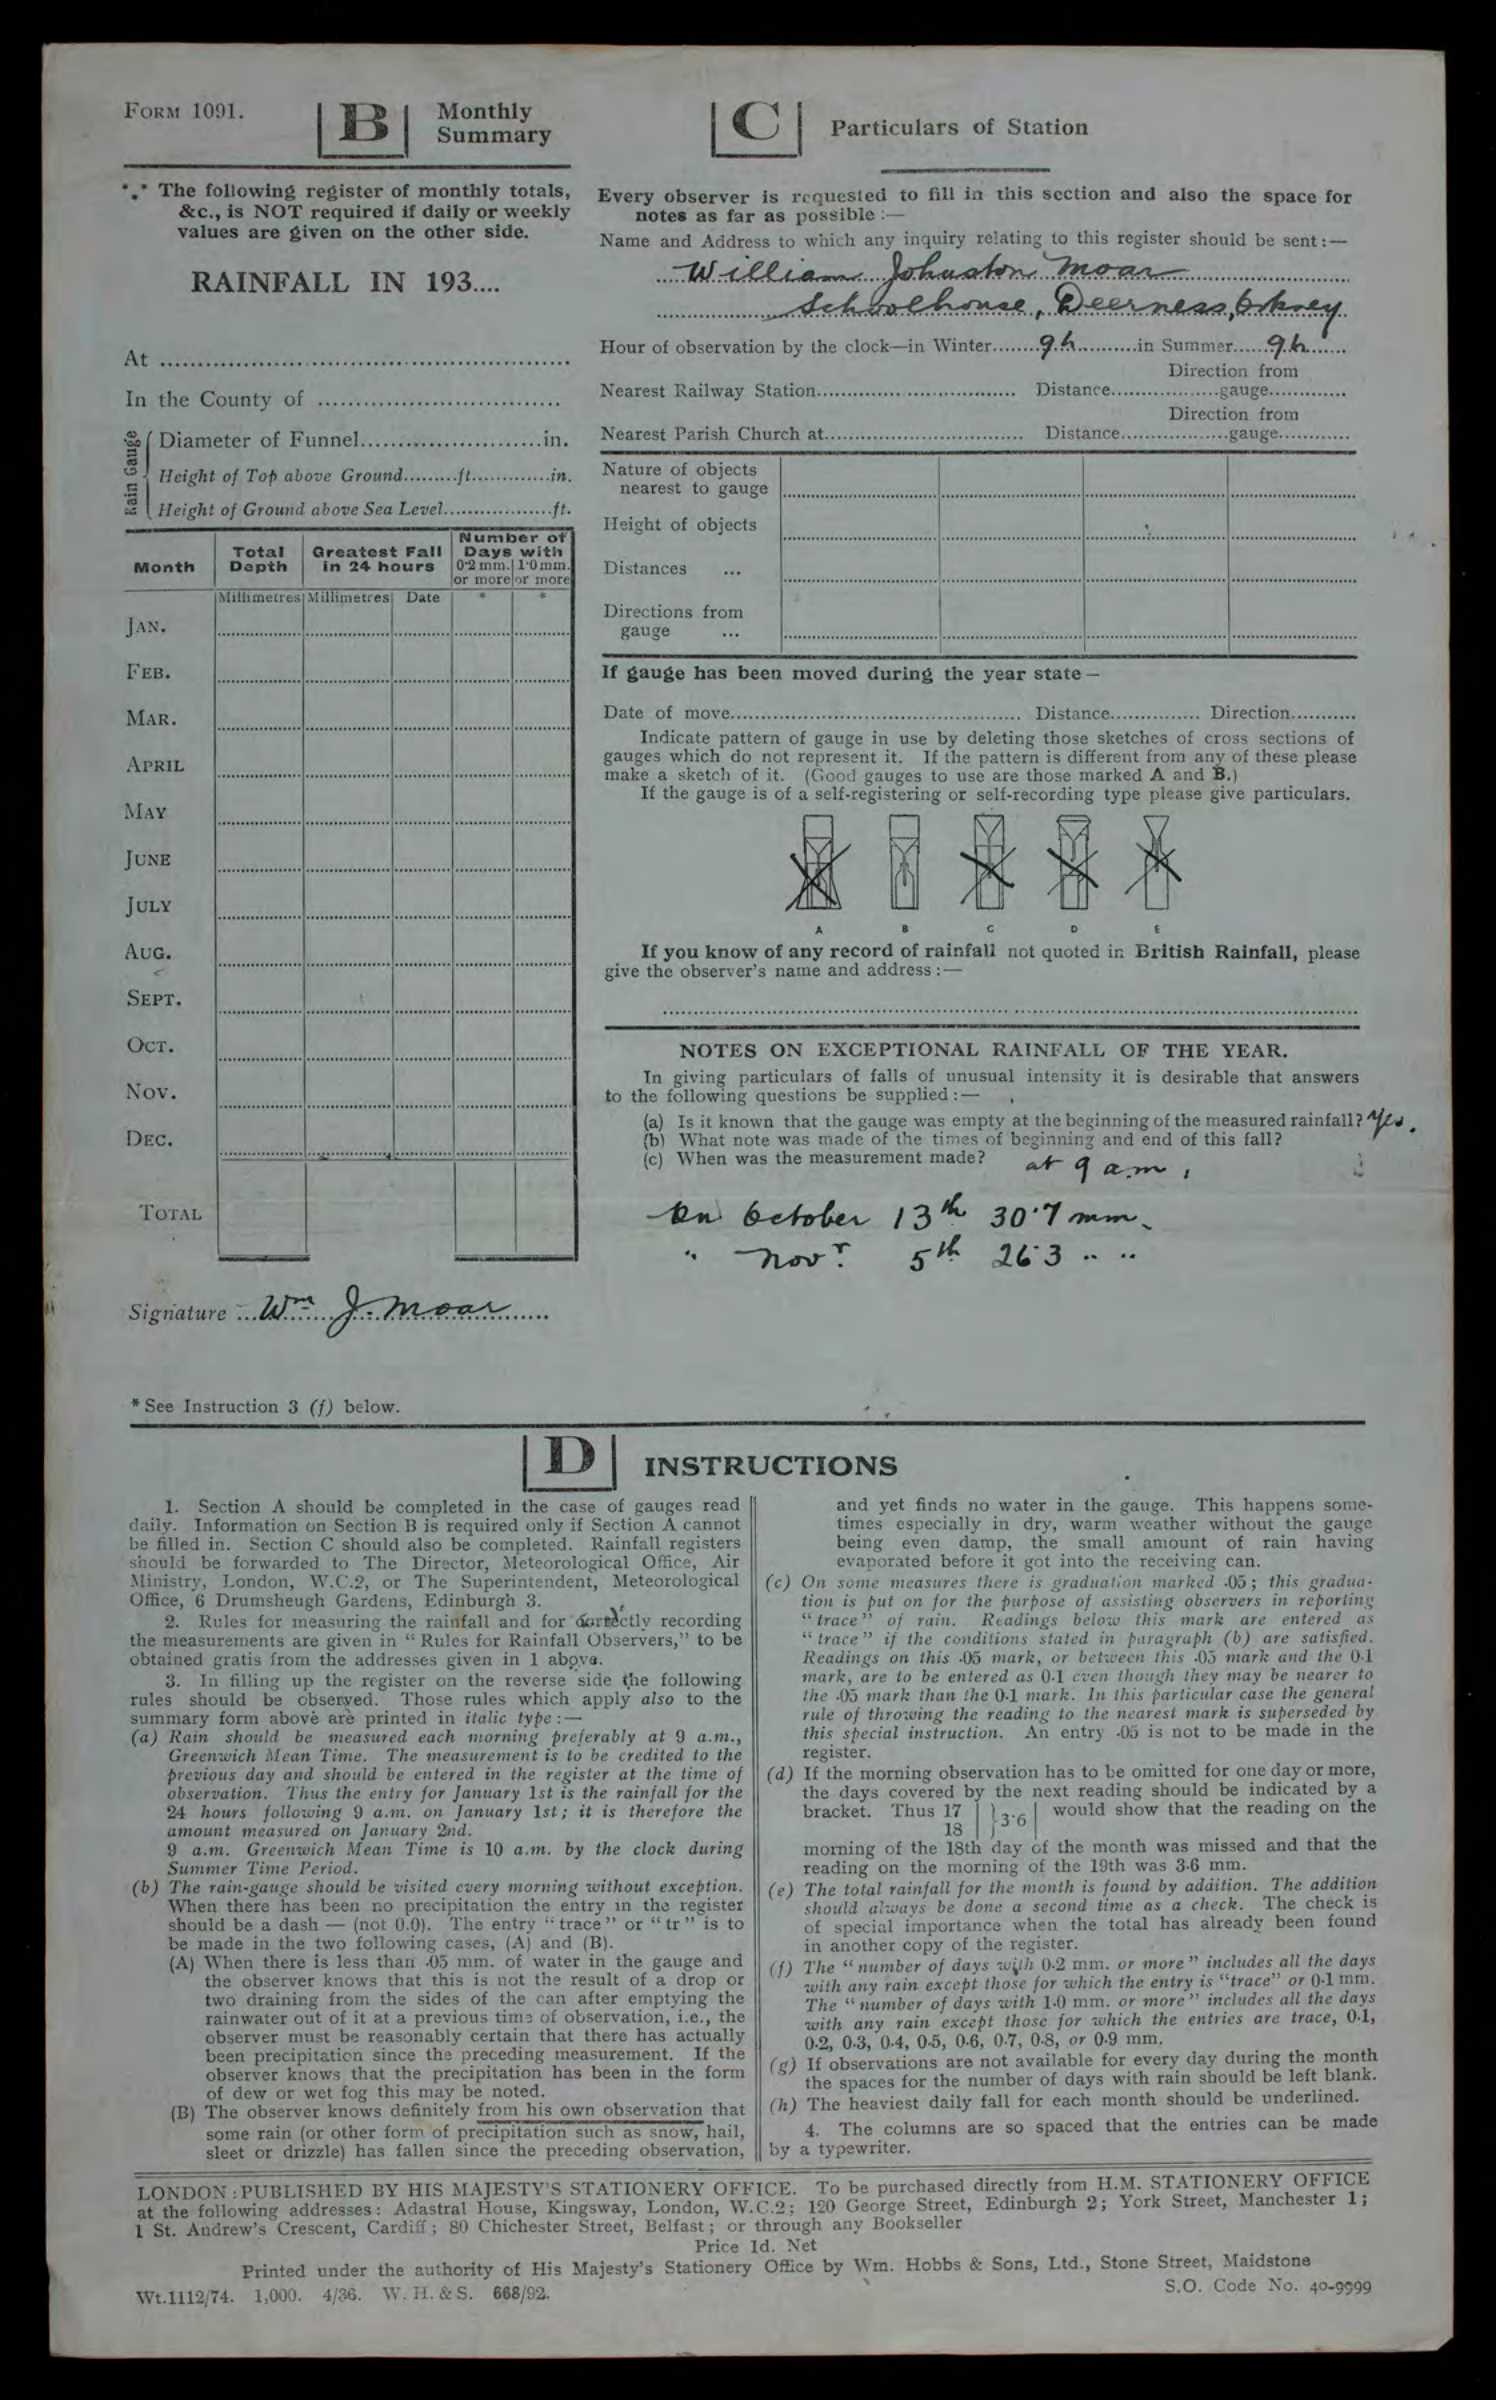 FORM 1091.
B
Monthly
Summary
*.* The following register of monthly totals,
&c., is NOT required if daily or weekly
values are given on the other side.
RAINFALL IN 193....
At
In the County of
Rain Gauge
Diameter of Funnel in.
Height of Top above Ground ft. in.
Height of Ground above Sea Level ft.
Month
Total
Depth
Greatest Fall
in 24 hours
Number of
Days with
0·2 mm. 1·0 mm.
or more or more
Millimetres Millimetres Date * *
JAN.
FEB.
MAR.
APRIL
MAY
JUNE
JULY
AUG.
SEPT.
OCT.
NOV.
DEC.
TOTAL
Signature Wm J. Moar
* See Instruction 3 (f) below.
C
Particulars of Station
Every observer is requested to fill in this section and also the space for
notes as far as possible :—
Name and Address to which any inquiry relating to this register should be sent :—
William Johnston Moar
Schoolhouse, Deerness, Orkney
Hour of observation by the clock—in Winter 9h in Summer 9h
Direction from
Nearest Railway Station Distance gauge
Direction from
Nearest Parish Church at Distance gauge
Nature of objects
nearest to gauge
Height of objects
Distances ...
Directions from
gauge ...
If gauge has been moved during the year state —
Date of move Distance Direction
Indicate pattern of gauge in use by deleting those sketches of cross sections of
gauges which do not represent it. If the pattern is different from any of these please
make a sketch of it. (Good gauges to use are those marked A and B.)
If the gauge is of a self-registering or self-recording type please give particulars.
A B C D E
If you know of any record of rainfall not quoted in British Rainfall, please
give the observer's name and address :—
NOTES ON EXCEPTIONAL RAINFALL OF THE YEAR.
In giving particulars of falls of unusual intensity it is desirable that answers
to the following questions be supplied :—
(a) Is it known that the gauge was empty at the beginning of the measured rainfall? Yes.
(b) What note was made of the times of beginning and end of this fall?
(c) When was the measurement made? at 9 a.m.
On October 13th 30·7 mm.
" Novr. 5th 26·3 " "
D
INSTRUCTIONS
1. Section A should be completed in the case of gauges read
daily. Information on Section B is required only if Section A cannot
be filled in. Section C should also be completed. Rainfall registers
should be forwarded to The Director, Meteorological Office, Air
Ministry, London, W.C.2, or The Superintendent, Meteorological
Office, 6 Drumsheugh Gardens, Edinburgh 3.
2. Rules for measuring the rainfall and for correctly recording
the measurements are given in "Rules for Rainfall Observers," to be
obtained gratis from the addresses given in 1 above.
3. In filling up the register on the reverse side the following
rules should be observed. Those rules which apply also to the
summary form above are printed in italic type :—
(a) Rain should be measured each morning preferably at 9 a.m.,
Greenwich Mean Time. The measurement is to be credited to the
previous day and should be entered in the register at the time of
observation. Thus the entry for January 1st is the rainfall for the
24 hours following 9 a.m. on January 1st; it is therefore the
amount measured on January 2nd.
9 a.m. Greenwich Mean Time is 10 a.m. by the clock during
Summer Time Period.
(b) The rain-gauge should be visited every morning without exception.
When there has been no precipitation the entry in the register
should be a dash — (not 0.0). The entry "trace" or "tr" is to
be made in the two following cases, (A) and (B).
(A) When there is less than ·05 mm. of water in the gauge and
the observer knows that this is not the result of a drop or
two draining from the sides of the can after emptying the
rainwater out of it at a previous time of observation, i.e., the
observer must be reasonably certain that there has actually
been precipitation since the preceding measurement. If the
observer knows that the precipitation has been in the form
of dew or wet fog this may be noted.
(B) The observer knows definitely from his own observation that
some rain (or other form of precipitation such as snow, hail,
sleet or drizzle) has fallen since the preceding observation,
and yet finds no water in the gauge. This happens some-
times especially in dry, warm weather without the gauge
being even damp, the small amount of rain having
evaporated before it got into the receiving can.
(c) On some measures there is graduation marked ·05; this gradua-
tion is put on for the purpose of assisting observers in reporting
"trace" of rain. Readings below this mark are entered as
"trace" if the conditions stated in paragraph (b) are satisfied.
Readings on this ·05 mark, or between this ·05 mark and the 0·1
mark, are to be entered as 0·1 even though they may be nearer to
the ·05 mark than the 0·1 mark. In this particular case the general
rule of throwing the reading to the nearest mark is superseded by
this special instruction. An entry ·05 is not to be made in the
register.
(d) If the morning observation has to be omitted for one day or more,
the days covered by the next reading should be indicated by a
bracket. Thus 17 | }3·6 | would show that the reading on the
18
morning of the 18th day of the month was missed and that the
reading on the morning of the 19th was 3·6 mm.
(e) The total rainfall for the month is found by addition. The addition
should always be done a second time as a check. The check is
of special importance when the total has already been found
in another copy of the register.
(f) The "number of days with 0·2 mm. or more" includes all the days
with any rain except those for which the entry is "trace" or 0·1 mm.
The "number of days with 1·0 mm. or more" includes all the days
with any rain except those for which the entries are trace, 0·1,
0·2, 0·3, 0·4, 0·5, 0·6, 0·7, 0·8, or 0·9 mm.
(g) If observations are not available for every day during the month
the spaces for the number of days with rain should be left blank.
(h) The heaviest daily fall for each month should be underlined.
4. The columns are so spaced that the entries can be made
by a typewriter.
LONDON : PUBLISHED BY HIS MAJESTY'S STATIONERY OFFICE. To be purchased directly from H.M. STATIONERY OFFICE
at the following addresses : Adastral House, Kingsway, London, W.C.2; 120 George Street, Edinburgh 2; York Street, Manchester 1;
1 St. Andrew's Crescent, Cardiff; 80 Chichester Street, Belfast; or through any Bookseller
Price 1d. Net
Printed under the authority of His Majesty's Stationery Office by Wm. Hobbs & Sons, Ltd., Stone Street, Maidstone
Wt.1112/74. 1,000. 4/36. W. H. & S. 668/92.
S.O. Code No. 40-9999